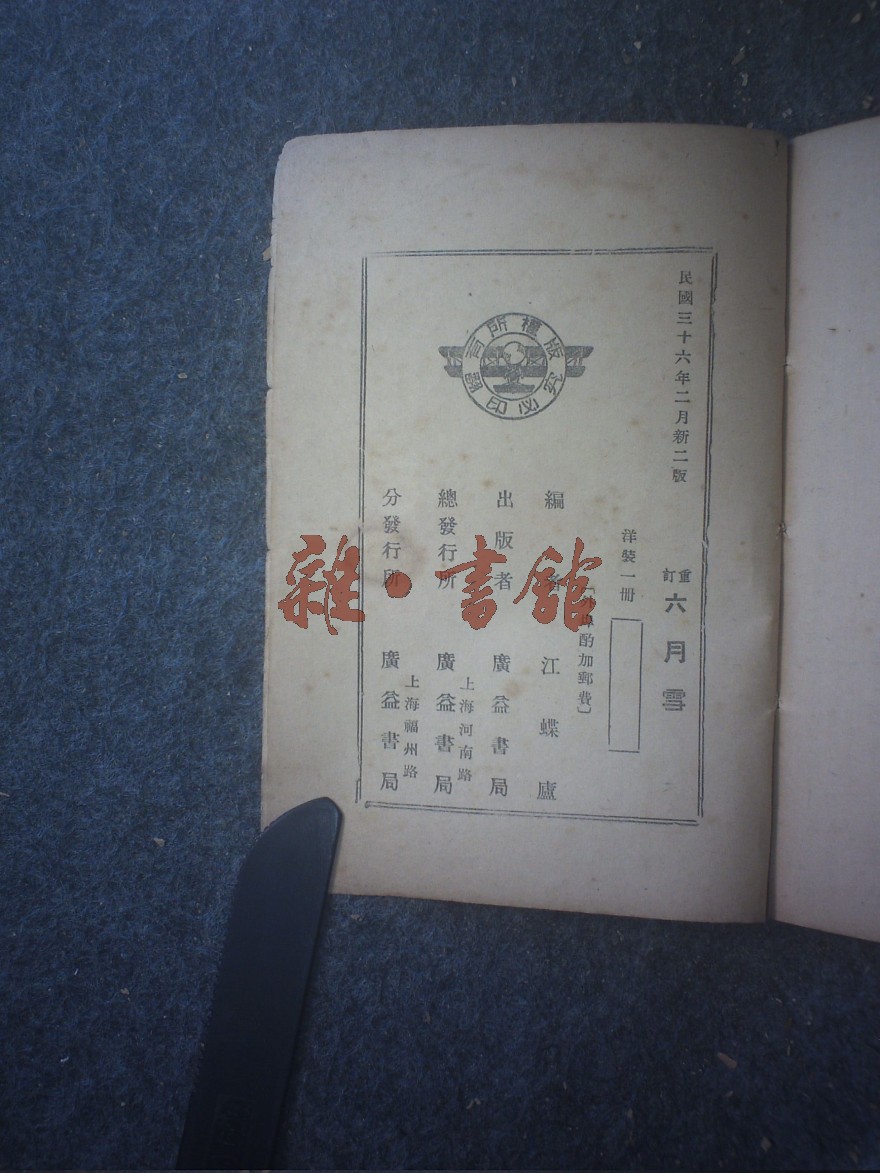 民國三十六年二月新二版
重訂 六月雪
洋裝一冊
酌加郵費〕
編 江蝶廬
出版者 廣益書局
總發行所 上海河南路 廣益書局
分發行所 上海福州路 廣益書局
版權所有
翻印必究
雜·書館